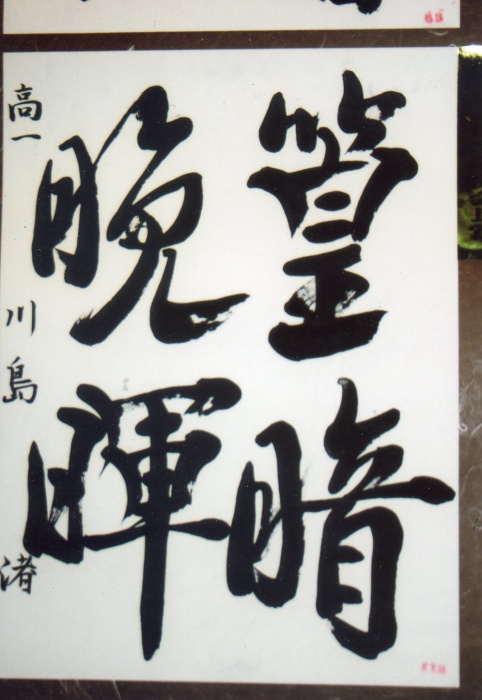 篁暗
晩暉
高一 川島 渚